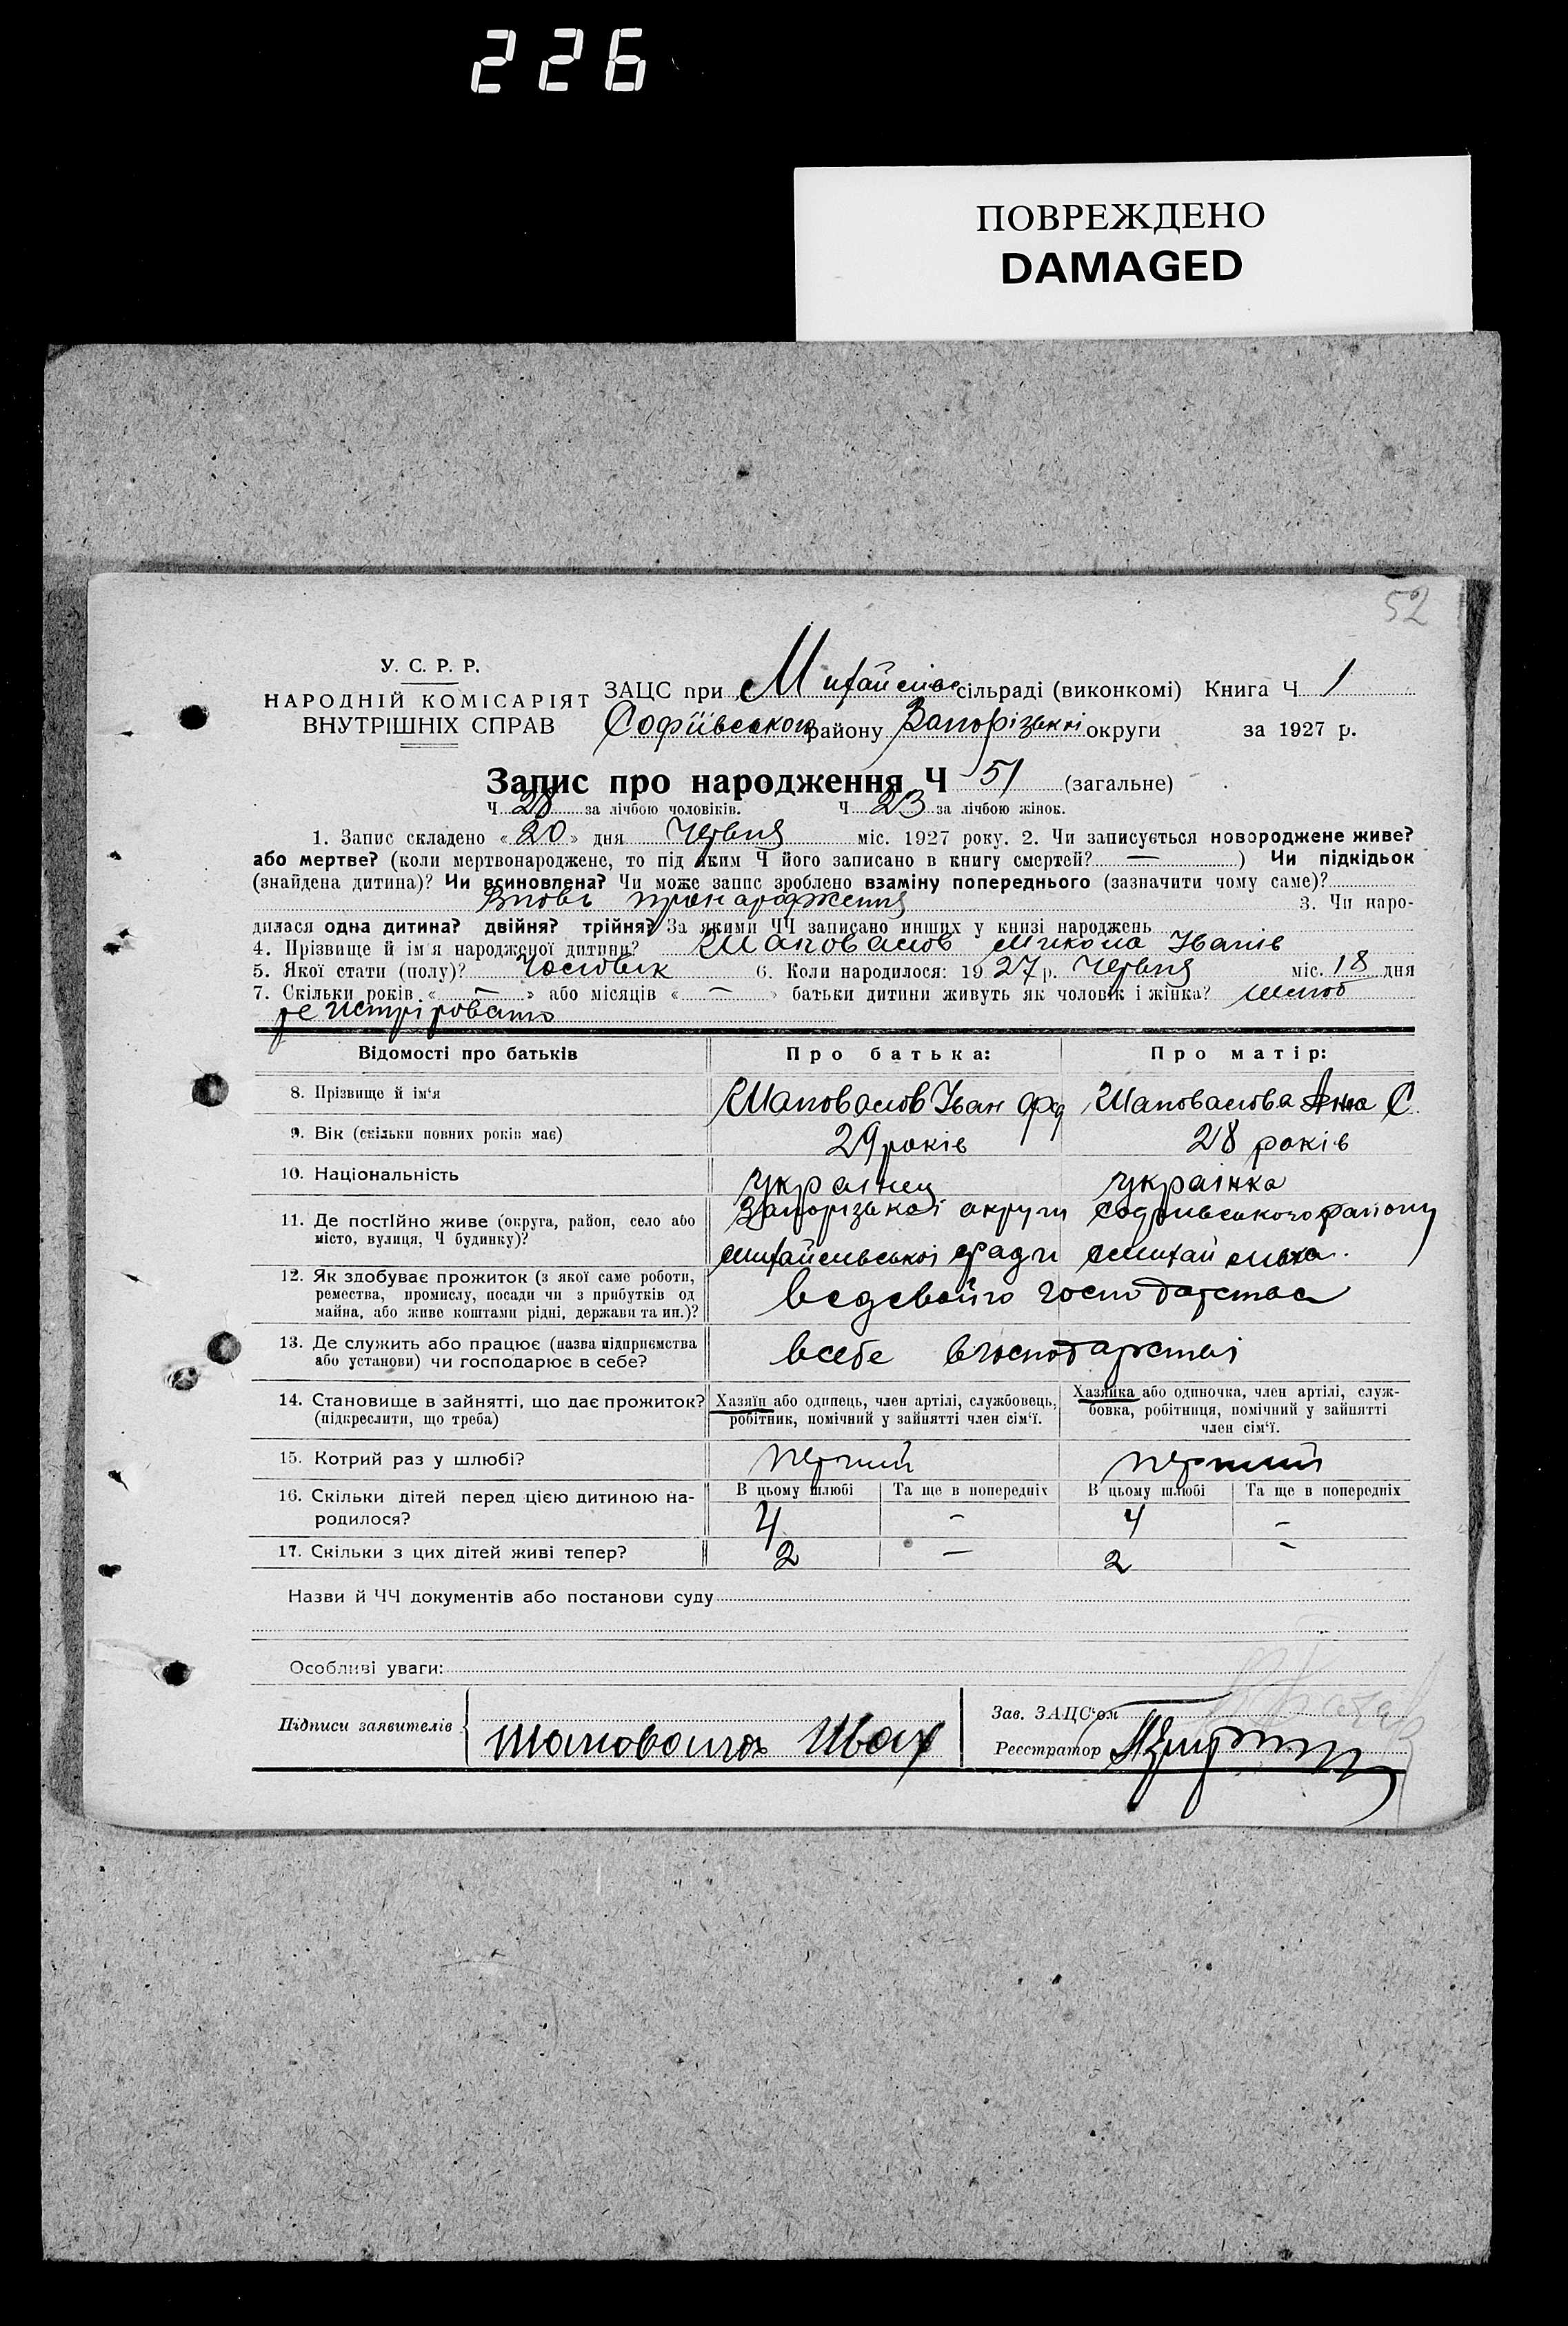 226
ПОВРЕЖДЕНО
DAMAGED
52
У. С. Р. Р.
НАРОДНІЙ КОМІСАРІЯТ
ВНУТРІШНІХ СПРАВ
ЗАЦС при сільраді (виконкомі) Книга Ч 1
Софіївського району Запорізькі округи за 1927 р.
Запис про народження Ч 51 (загальне)
Ч 28 за лічбою чоловіків. Ч 23 за лічбою жінок.
1. Запис складено «20» дня Червня міс. 1927 року. 2. Чи записується новороджене живе?
або мертве? (коли мертвонароджене, то під яким Ч його записано в книгу смертей? — ) Чи підкідьок
(знайдена дитина)? Чи всиновлена? Чи може запис зроблено взаміну попереднього (зазначити чому саме)?
Вновь 3. Чи наро-
дилася одна дитина? двійня? трійня? За якими ЧЧ записано инших у книзі народжень
4. Прізвище й ім'я народженої дитини? Шаповалов Микола Іванів
5. Якої стати (полу)? Чоловік 6. Коли народилося: 1927 р. Червня міс. 18 дня
7. Скільки років « — » або місяців « — » батьки дитини живуть як чоловік і жінка? шлюб
Відомості про батьків
Про батька:
Про матір:
8. Прізвище й ім‘я
Шаповалов Іван
Шаповалова Анна С.
9. Вік (скільки повних років має)
29 років
28 років
10. Національність
українец
українка
11. Де постійно живе (округа, район, село або
місто, вулиця, Ч будинку)?
Запорізької округи Софиивського району
12. Як здобуває прожиток (з якої саме роботи,
ремества, промислу, посади чи з прибутків од
майна, або живе коштами рідні, держави та ин.)?
13. Де служить або працює (назва підприємства
або установи) чи господарює в себе?
всебе вгосподарстві
14. Становище в зайнятті, що дає прожиток?
(підкреслити, що треба)
Хазяїн або одинець, член артілі, службовець,
робітник, помічний у зайнятті член сім‘ї.
Хазяйка або одиночка, член артілі, служ-
бовка, робітниця, помічний у зайнятті
член сім‘ї.
15. Котрий раз у шлюбі?
перший
перший
16. Скільки дітей перед цією дитиною на-
родилося?
В цьому шлюбі
Та ще в попередніх
В цьому шлюбі
Та ще в попередніх
4 — 4 —
17. Скільки з цих дітей живі тепер?
2 — 2 —
Назви й ЧЧ документів або постанови суду
Особливі уваги:
Підписи заявителів
Зав. ЗАЦС‘ом
Реєстратор